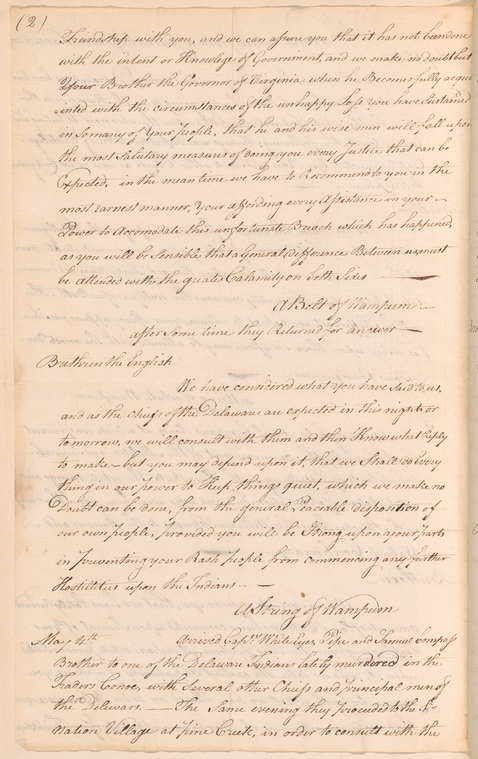 (2)
Freindship with you, and we can assure you that it has not been done
with the intent or Knowlege of Government, and we make no doubt but
Your Brother the Governor of Virginia when he Becomes fully acqua
=inted with the circumstances of the unhappy loss you have Sustained
in so many of Your People, that he and his wise men will fall upon
the most Salutary measure of doing you every Justice that can be
Expected, in the mean time we have to Recommend to you in the
most earnest manner, Your affording every Assistance in your
Power to Accomodate this unfortunate Breach which has happened,
as you will be Sensible that a General difference Between us must
be attended with the greatest Calamity on both Sides —
A Belt of Wampum —
after some time they Returned for answer —
Brethren the English
We have considered what you have Said to us,
and as the chiefs of the Delawares are expected in this night or
tomorrow, we will consult with them and then Know what Reply
to make – but you may depend upon it, that we Shall do every
thing in our Power to Keep things quiet, which we make no
Doubt can be done, from the general Peaceable disposition of
our own people, provided you will be Strong upon your parts
in preventing your Rash People from commencing any further
Hostilitus upon the Indians —
A String of Wampum
May 4th Arrived Captn White Eyes, Pipe and Samuel Compass
Brother to one of the Delaware Indians lately murdered in the
Traders Conoe, with Several other Chiefs and principal men of
the Delewars. — The Same evening they proceeded to the Si
nation Village at Pine Creek, in order to consult with the